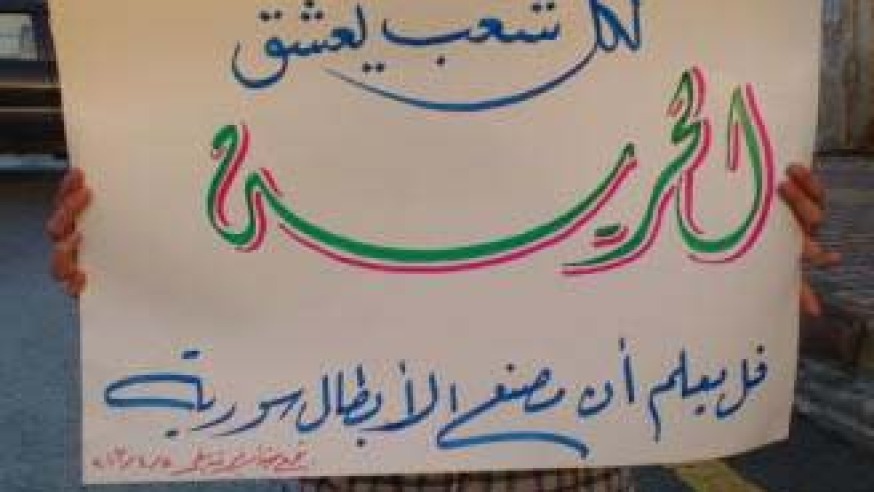 لكل شعب يعشق
الحرية
فليعلم أن مصنع الأبطال سورية